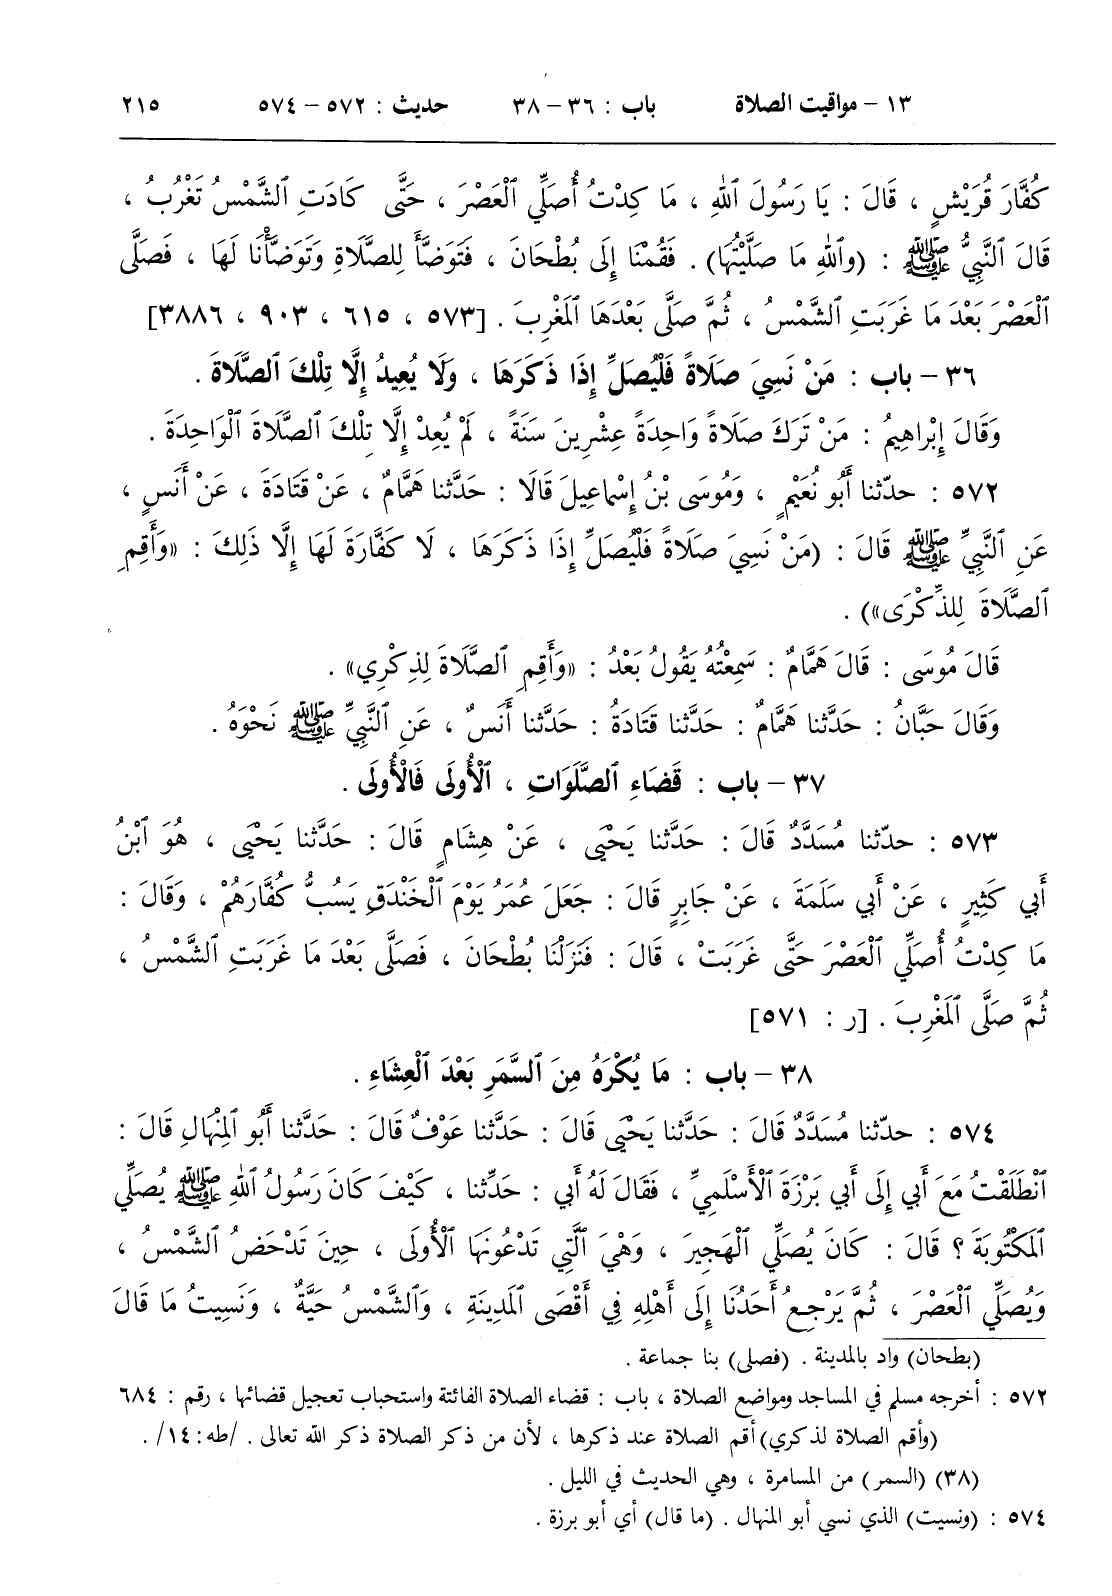 ١٣ – مواقيت الصلاة باب : ٣٦ – ٣٨ حديث : ٥٧٢ – ٥٧٤ ٢١٥
كُفَّارَ قُرَيْشٍ ، قَالَ : يَا رَسُولَ ٱللهِ ، مَا كِدْتُ أُصَلِّي ٱلْعَصْرَ ، حَتَّى كَادَتِ ٱلشَّمْسُ تَغْرُبُ ،
قَالَ ٱلنَّبِيُّ ﷺ : (وَٱللهِ مَا صَلَّيْتُهَا) . فَقُمْنَا إِلَى بُطْحَانَ ، فَتَوَضَّأَ لِلصَّلَاةِ وَتَوَضَّأْنَا لَهَا ، فَصَلَّى
ٱلْعَصْرَ بَعْدَ مَا غَرَبَتِ ٱلشَّمْسُ ، ثُمَّ صَلَّى بَعْدَهَا ٱلمَغْرِبَ . [٥٧٣ ، ٦١٥ ، ٩٠٣ ، ٣٨٨٦]
٣٦ – باب : مَنْ نَسِيَ صَلَاةً فَلْيُصَلِّ إِذَا ذَكَرَهَا ، وَلَا يُعِيدُ إِلَّا تِلْكَ ٱلصَّلَاةَ .
وَقَالَ إِبْرَاهِيمُ : مَنْ تَرَكَ صَلَاةً وَاحِدَةً عِشْرِينَ سَنَةً ، لَمْ يُعِدْ إِلَّا تِلْكَ ٱلصَّلَاةَ ٱلْوَاحِدَةَ .
٥٧٢ : حدّثنا أَبُو نُعَيْمٍ ، وَمُوسَى بْنُ إِسْمَاعِيلَ قَالَا : حَدَّثَنَا هَمَّامٌ ، عَنْ قَتَادَةَ ، عَنْ أَنَسٍ ،
عَنِ ٱلنَّبِيِّ ﷺ قَالَ : (مَنْ نَسِيَ صَلَاةً فَلْيُصَلِّ إِذَا ذَكَرَهَا ، لَا كَفَّارَةَ لَهَا إِلَّا ذَلِكَ : «وَأَقِمِ
ٱلصَّلَاةَ لِلذِّكْرَى») .
قَالَ مُوسَى : قَالَ هَمَّامٌ : سَمِعْتُهُ يَقُولُ بَعْدُ : «وَأَقِمِ ٱلصَّلَاةَ لِذِكْرِي» .
وَقَالَ حَبَّانُ : حَدَّثَنَا هَمَّامٌ : حَدَّثَنَا قَتَادَةُ : حَدَّثَنَا أَنَسٌ ، عَنِ ٱلنَّبِيِّ ﷺ نَحْوَهُ .
٣٧ – باب : قَضَاءِ ٱلصَّلَوَاتِ ، ٱلْأُولَى فَالْأُولَى .
٥٧٣ : حدّثنا مُسَدَّدٌ قَالَ : حَدَّثَنَا يَحْيَى ، عَنْ هِشَامٍ قَالَ : حَدَّثَنَا يَحْيَى ، هُوَ ٱبْنُ
أَبِي كَثِيرٍ ، عَنْ أَبِي سَلَمَةَ ، عَنْ جَابِرٍ قَالَ : جَعَلَ عُمَرُ يَوْمَ ٱلْخَنْدَقِ يَسُبُّ كُفَّارَهُمْ ، وَقَالَ :
مَا كِدْتُ أُصَلِّي ٱلْعَصْرَ حَتَّى غَرَبَتْ ، قَالَ : فَنَزَلْنَا بُطْحَانَ ، فَصَلَّى بَعْدَ مَا غَرَبَتِ ٱلشَّمْسُ ،
ثُمَّ صَلَّى ٱلمَغْرِبَ . [ر : ٥٧١]
٣٨ – باب : مَا يُكْرَهُ مِنَ ٱلسَّمَرِ بَعْدَ ٱلْعِشَاءِ .
٥٧٤ : حدّثنا مُسَدَّدٌ قَالَ : حَدَّثَنَا يَحْيَى قَالَ : حَدَّثَنَا عَوْفٌ قَالَ : حَدَّثَنَا أَبُو ٱلْمِنْهَالِ قَالَ :
ٱنْطَلَقْتُ مَعَ أَبِي إِلَى أَبِي بَرْزَةَ ٱلْأَسْلَمِيِّ ، فَقَالَ لَهُ أَبِي : حَدِّثْنَا ، كَيْفَ كَانَ رَسُولُ ٱللهِ ﷺ يُصَلِّي
ٱلمَكْتُوبَةَ ؟ قَالَ : كَانَ يُصَلِّي ٱلْهَجِيرَ ، وَهْيَ ٱلَّتِي تَدْعُونَهَا ٱلْأُولَى ، حِينَ تَدْحَضُ ٱلشَّمْسُ ،
وَيُصَلِّي ٱلْعَصْرَ ، ثُمَّ يَرْجِعُ أَحَدُنَا إِلَى أَهْلِهِ فِي أَقْصَى ٱلمَدِينَةِ ، وَٱلشَّمْسُ حَيَّةٌ ، وَنَسِيتُ مَا قَالَ
(بطحان) واد بالمدينة . (فصلى) بنا جماعة .
٥٧٢ : أخرجه مسلم في المساجد ومواضع الصلاة ، باب : قضاء الصلاة الفائتة واستحباب تعجيل قضائها ، رقم : ٦٨٤
(وأقم الصلاة لذكري) أقم الصلاة عند ذكرها ، لأن من ذكر الصلاة ذكر الله تعالى . /طه : ١٤/ .
(٣٨) (السمر) من المسامرة ، وهي الحديث في الليل .
٥٧٤ : (ونسيت) الذي نسي أبو المنهال . (ما قال) أي أبو برزة .